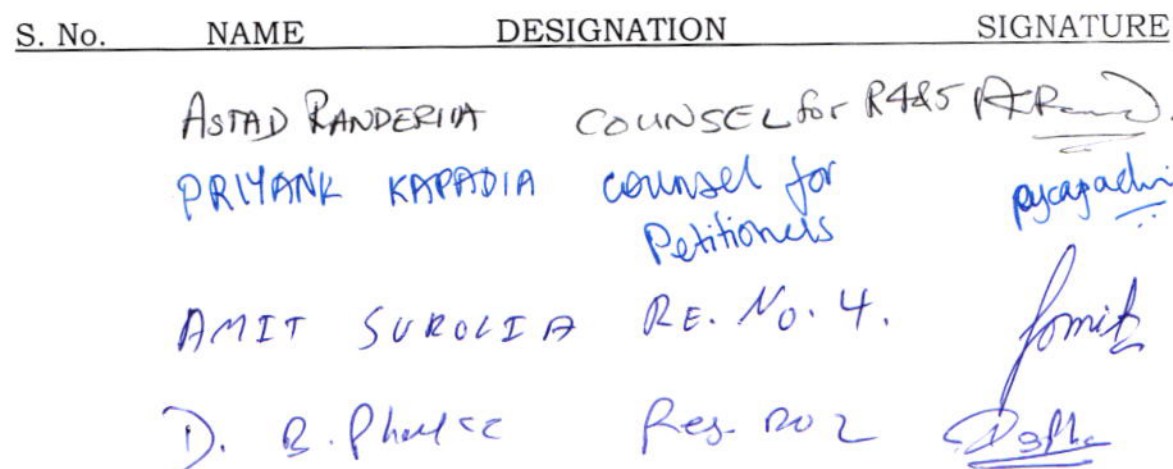 S. No. NAME DESIGNATION SIGNATURE
ASTAD RANDERIIA COUNSEL for R4&5
PRIYANK KAPADIA counsel for
Petitioners
AMIT SUROLIA RE. No. 4. Amit
D. B. Res. no 2